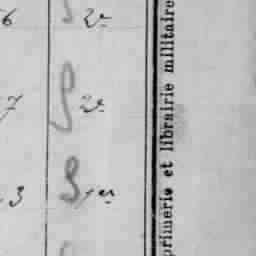 6 S 2e
7 S 2e
3 S 1er
primerie et librairie militaire